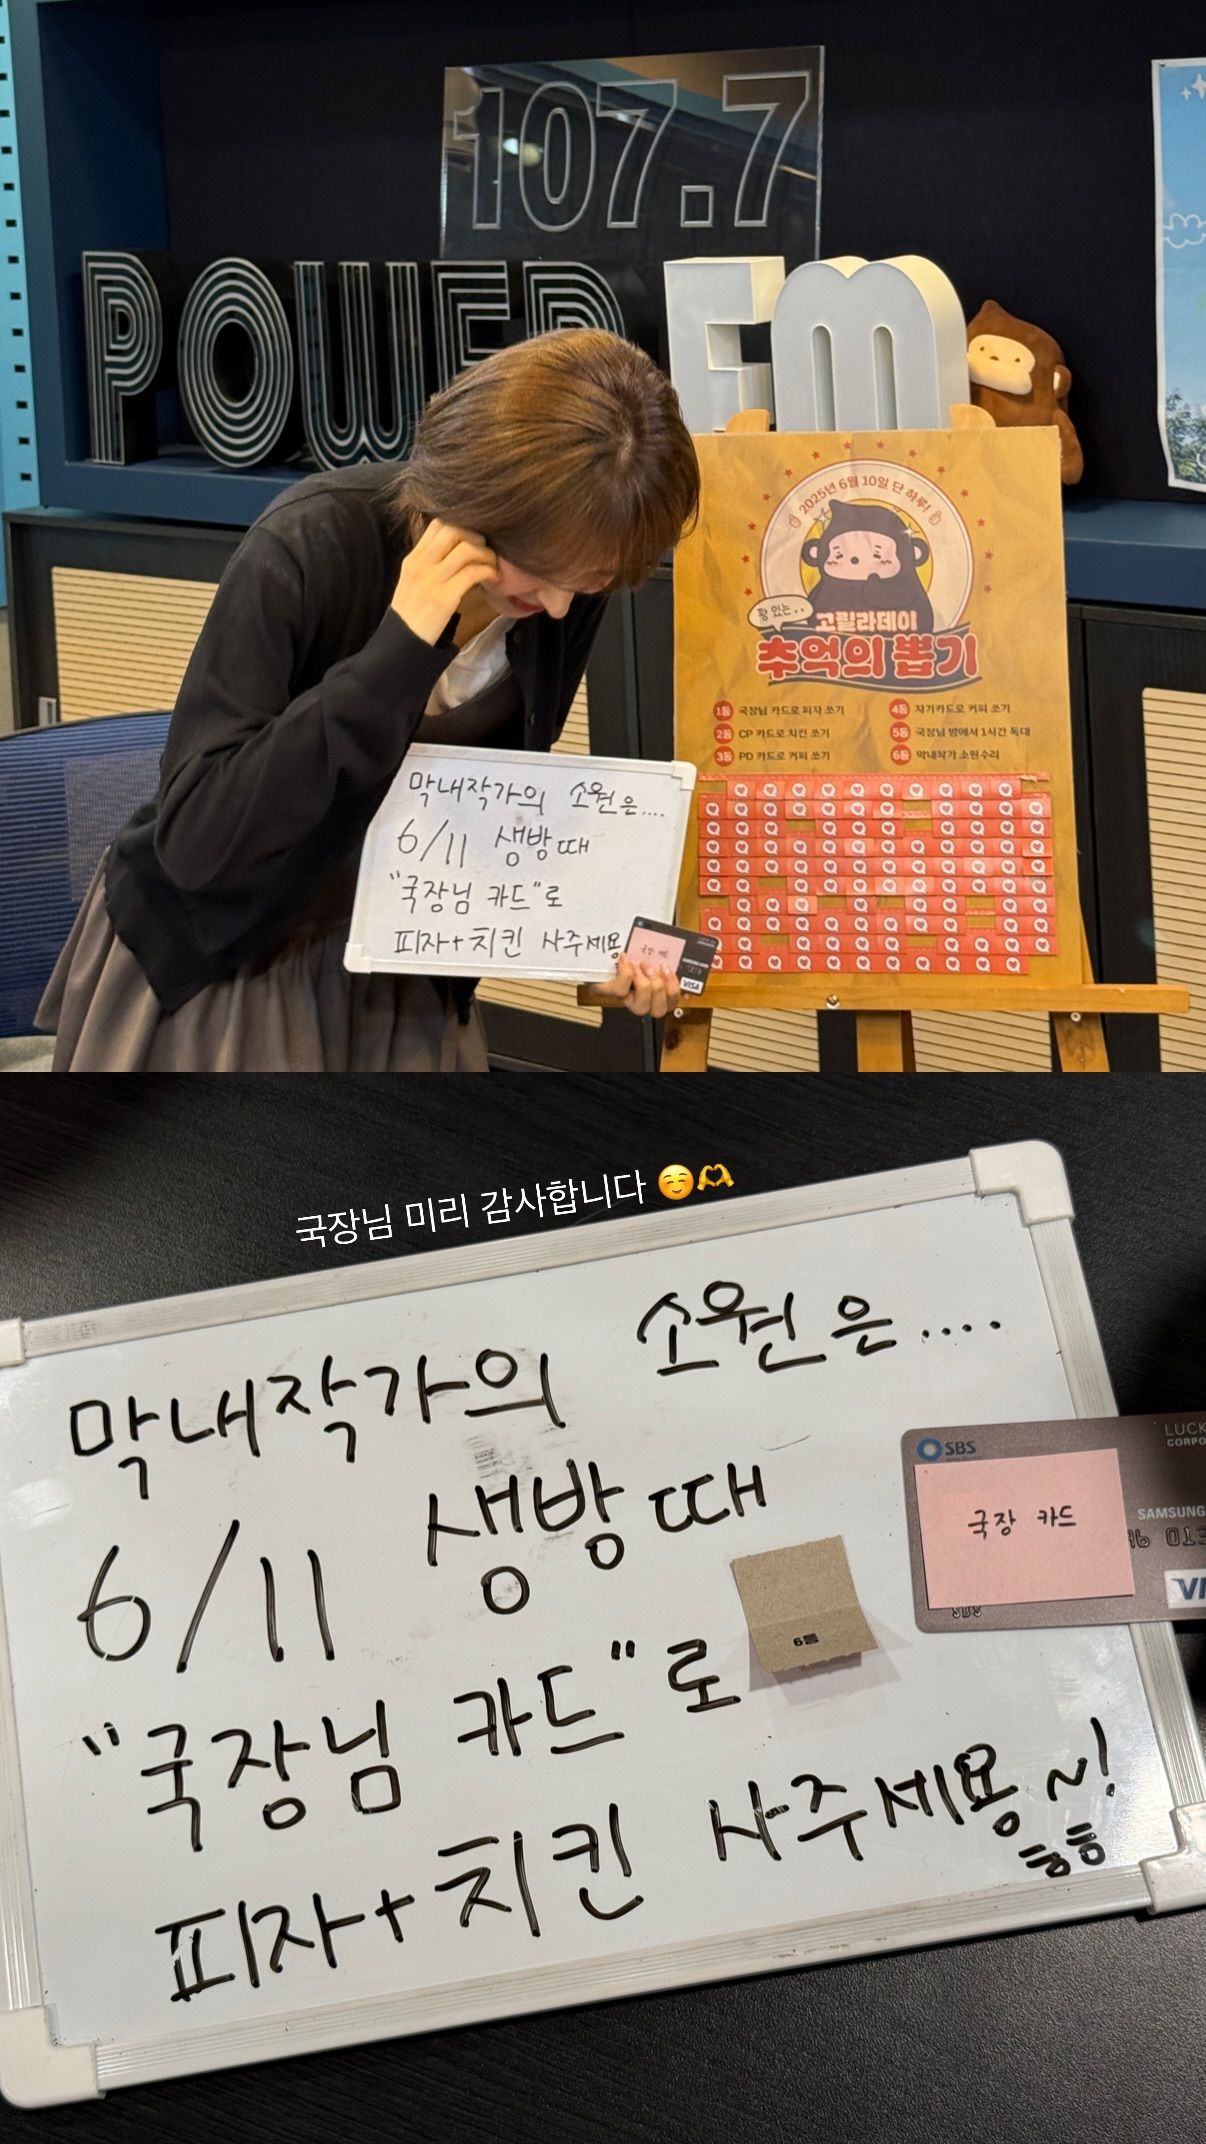 107.7
POWER FM
2025년 6월 10일 단 하루!
꽝 있는..
고릴라데이
추억의 뽑기
1등 국장님 카드로 피자 쏘기
2등 CP 카드로 치킨 쏘기
3등 PD 카드로 커피 쏘기
4등 자기카드로 커피 쏘기
5등 국장님 방에서 1시간 독대
6등 막내작가 소원수리
막내작가의 소원은....
6/11 생방때
"국장님 카드"로
피자+치킨 사주세용
국장 카드
VISA
국장님 미리 감사합니다 ☺️🫶
막내작가의 소원은....
6/11 생방때
"국장님 카드"로
피자+치킨 사주세용~!
6등
SBS
국장 카드
SAMSUNG
SBS